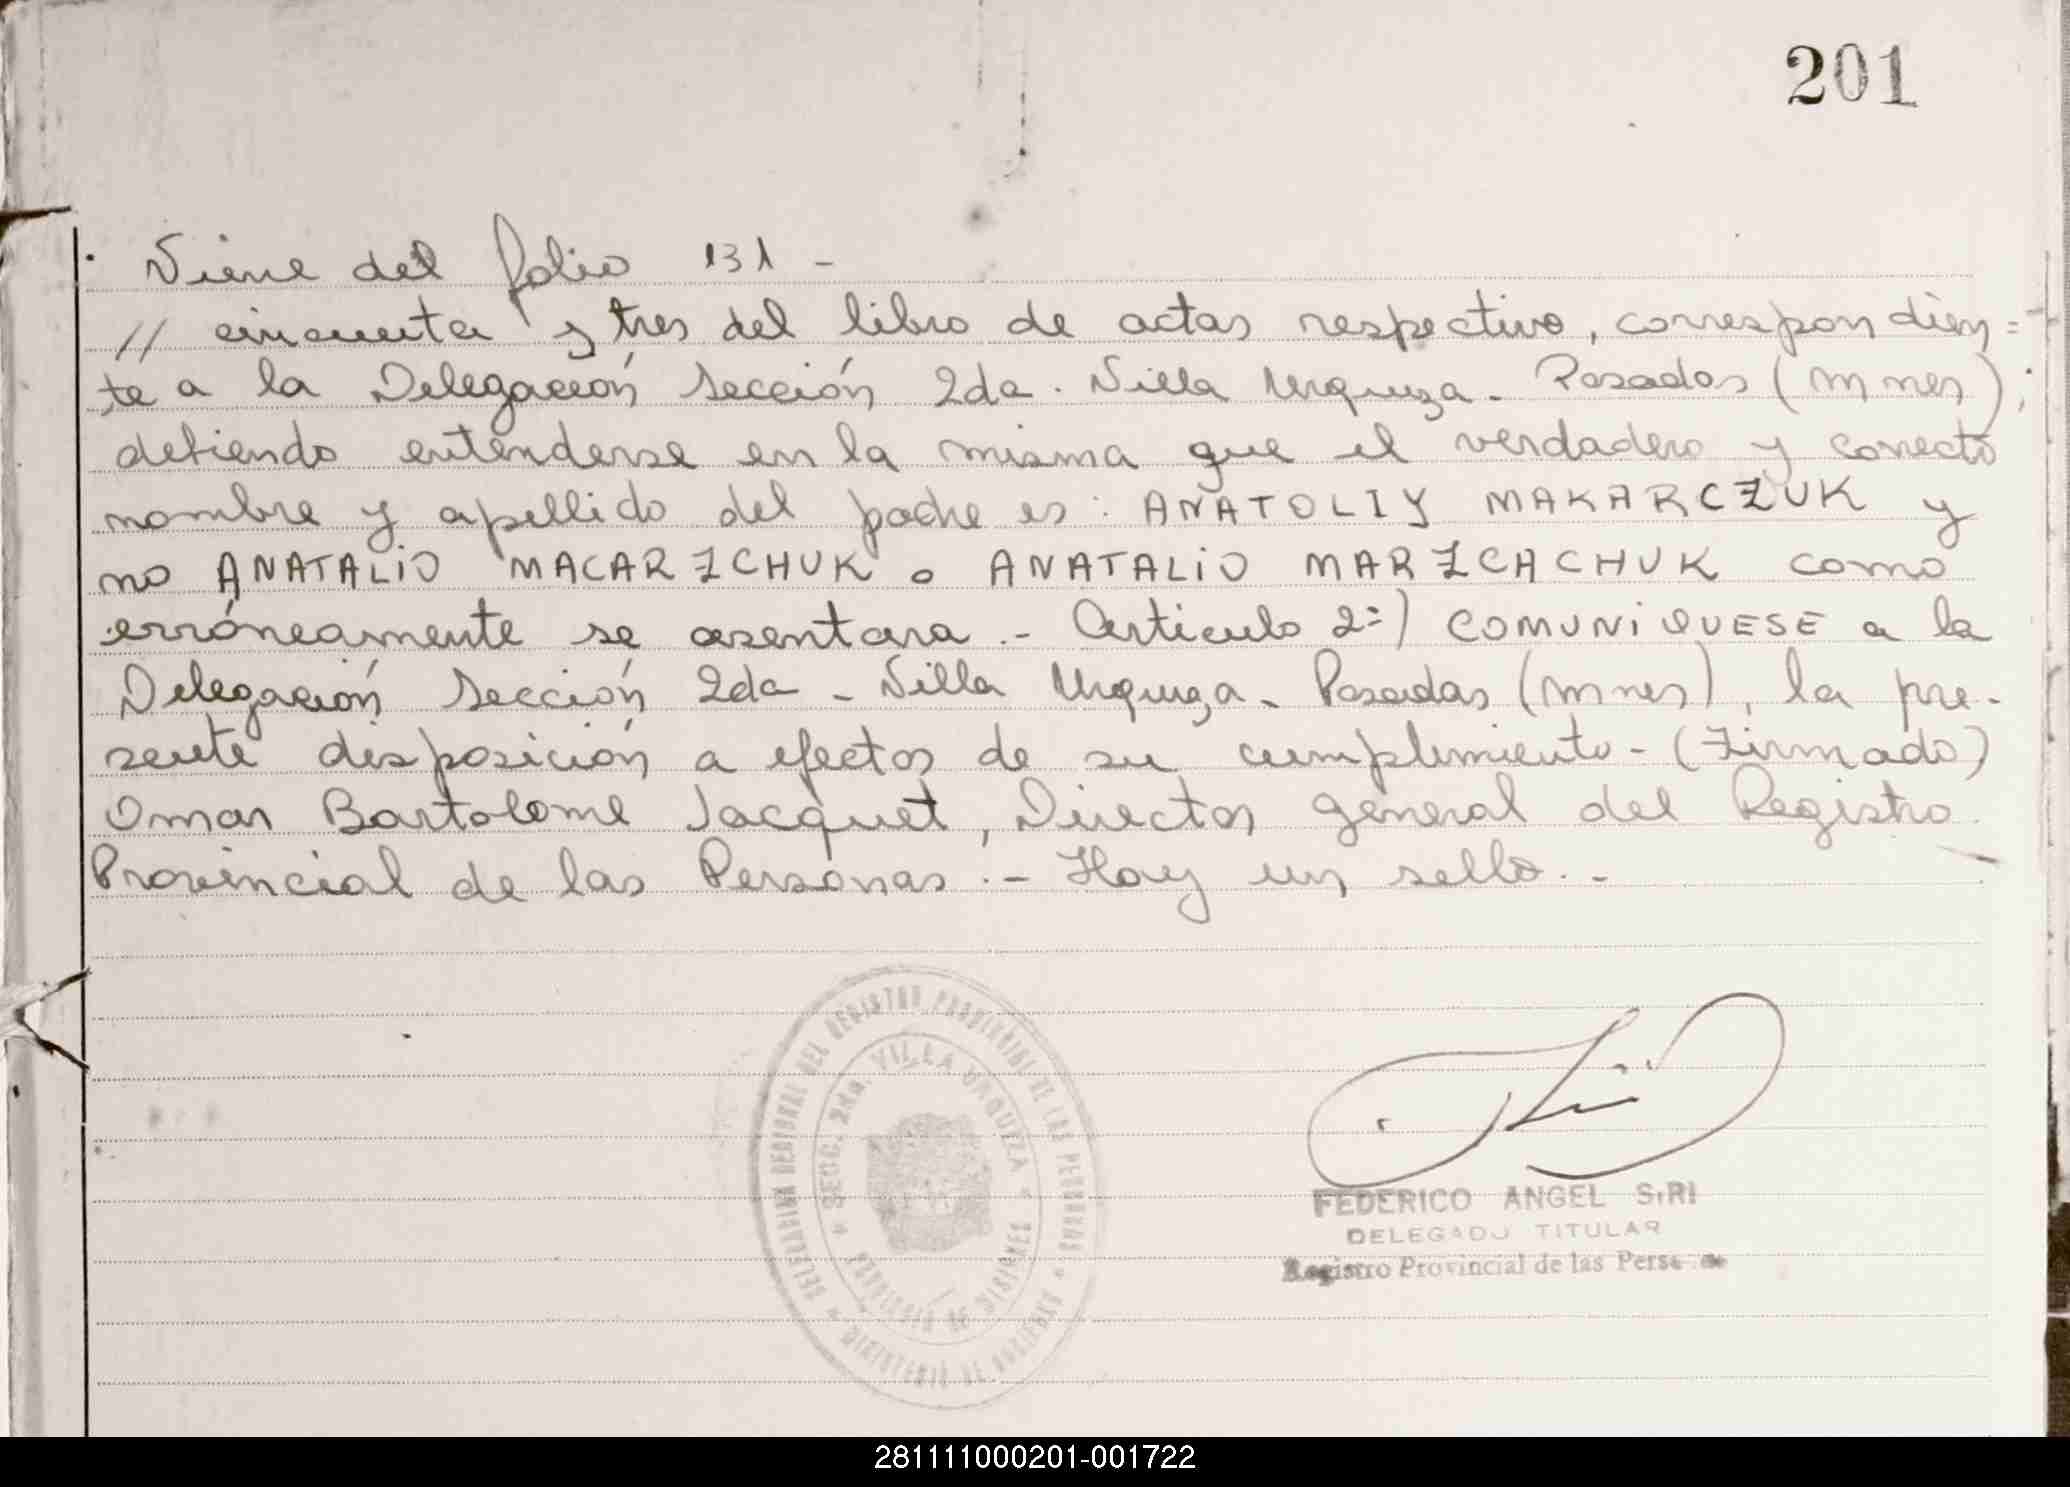 201
Viene del folio 131 -
// cincuenta y tres del libro de actas respectivo, correspondien=
te a la Delegación Sección 2da. Villa Urquiza - Posadas (Mnes);
debiendo entenderse en la misma que el verdadero y correcto
nombre y apellido del padre es: ANATOLIY MAKARCZUK y
no ANATALIO MACARZCHUK o ANATALIO MARZCACHUK como
erróneamente se asentara.- Artículo 2=) COMUNIQUESE a la
Delegación Sección 2da - Villa Urquiza - Posadas (Mnes), la pre-
sente disposición a efectos de su cumplimiento - (Firmado)
Omar Bartolome Jacquet, Director general del Registro
Provincial de las Personas.- Hay un sello.-
DELEGACION SECCIONAL DEL REGISTRO PROVINCIAL DE LAS PERSONAS
SECC. 2da. VILLA URQUIZA
PROVINCIA DE MISIONES
MINISTERIO DE GOBIERNO
FEDERICO ANGEL SIRI
DELEGADO TITULAR
Registro Provincial de las Personas
281111000201-001722